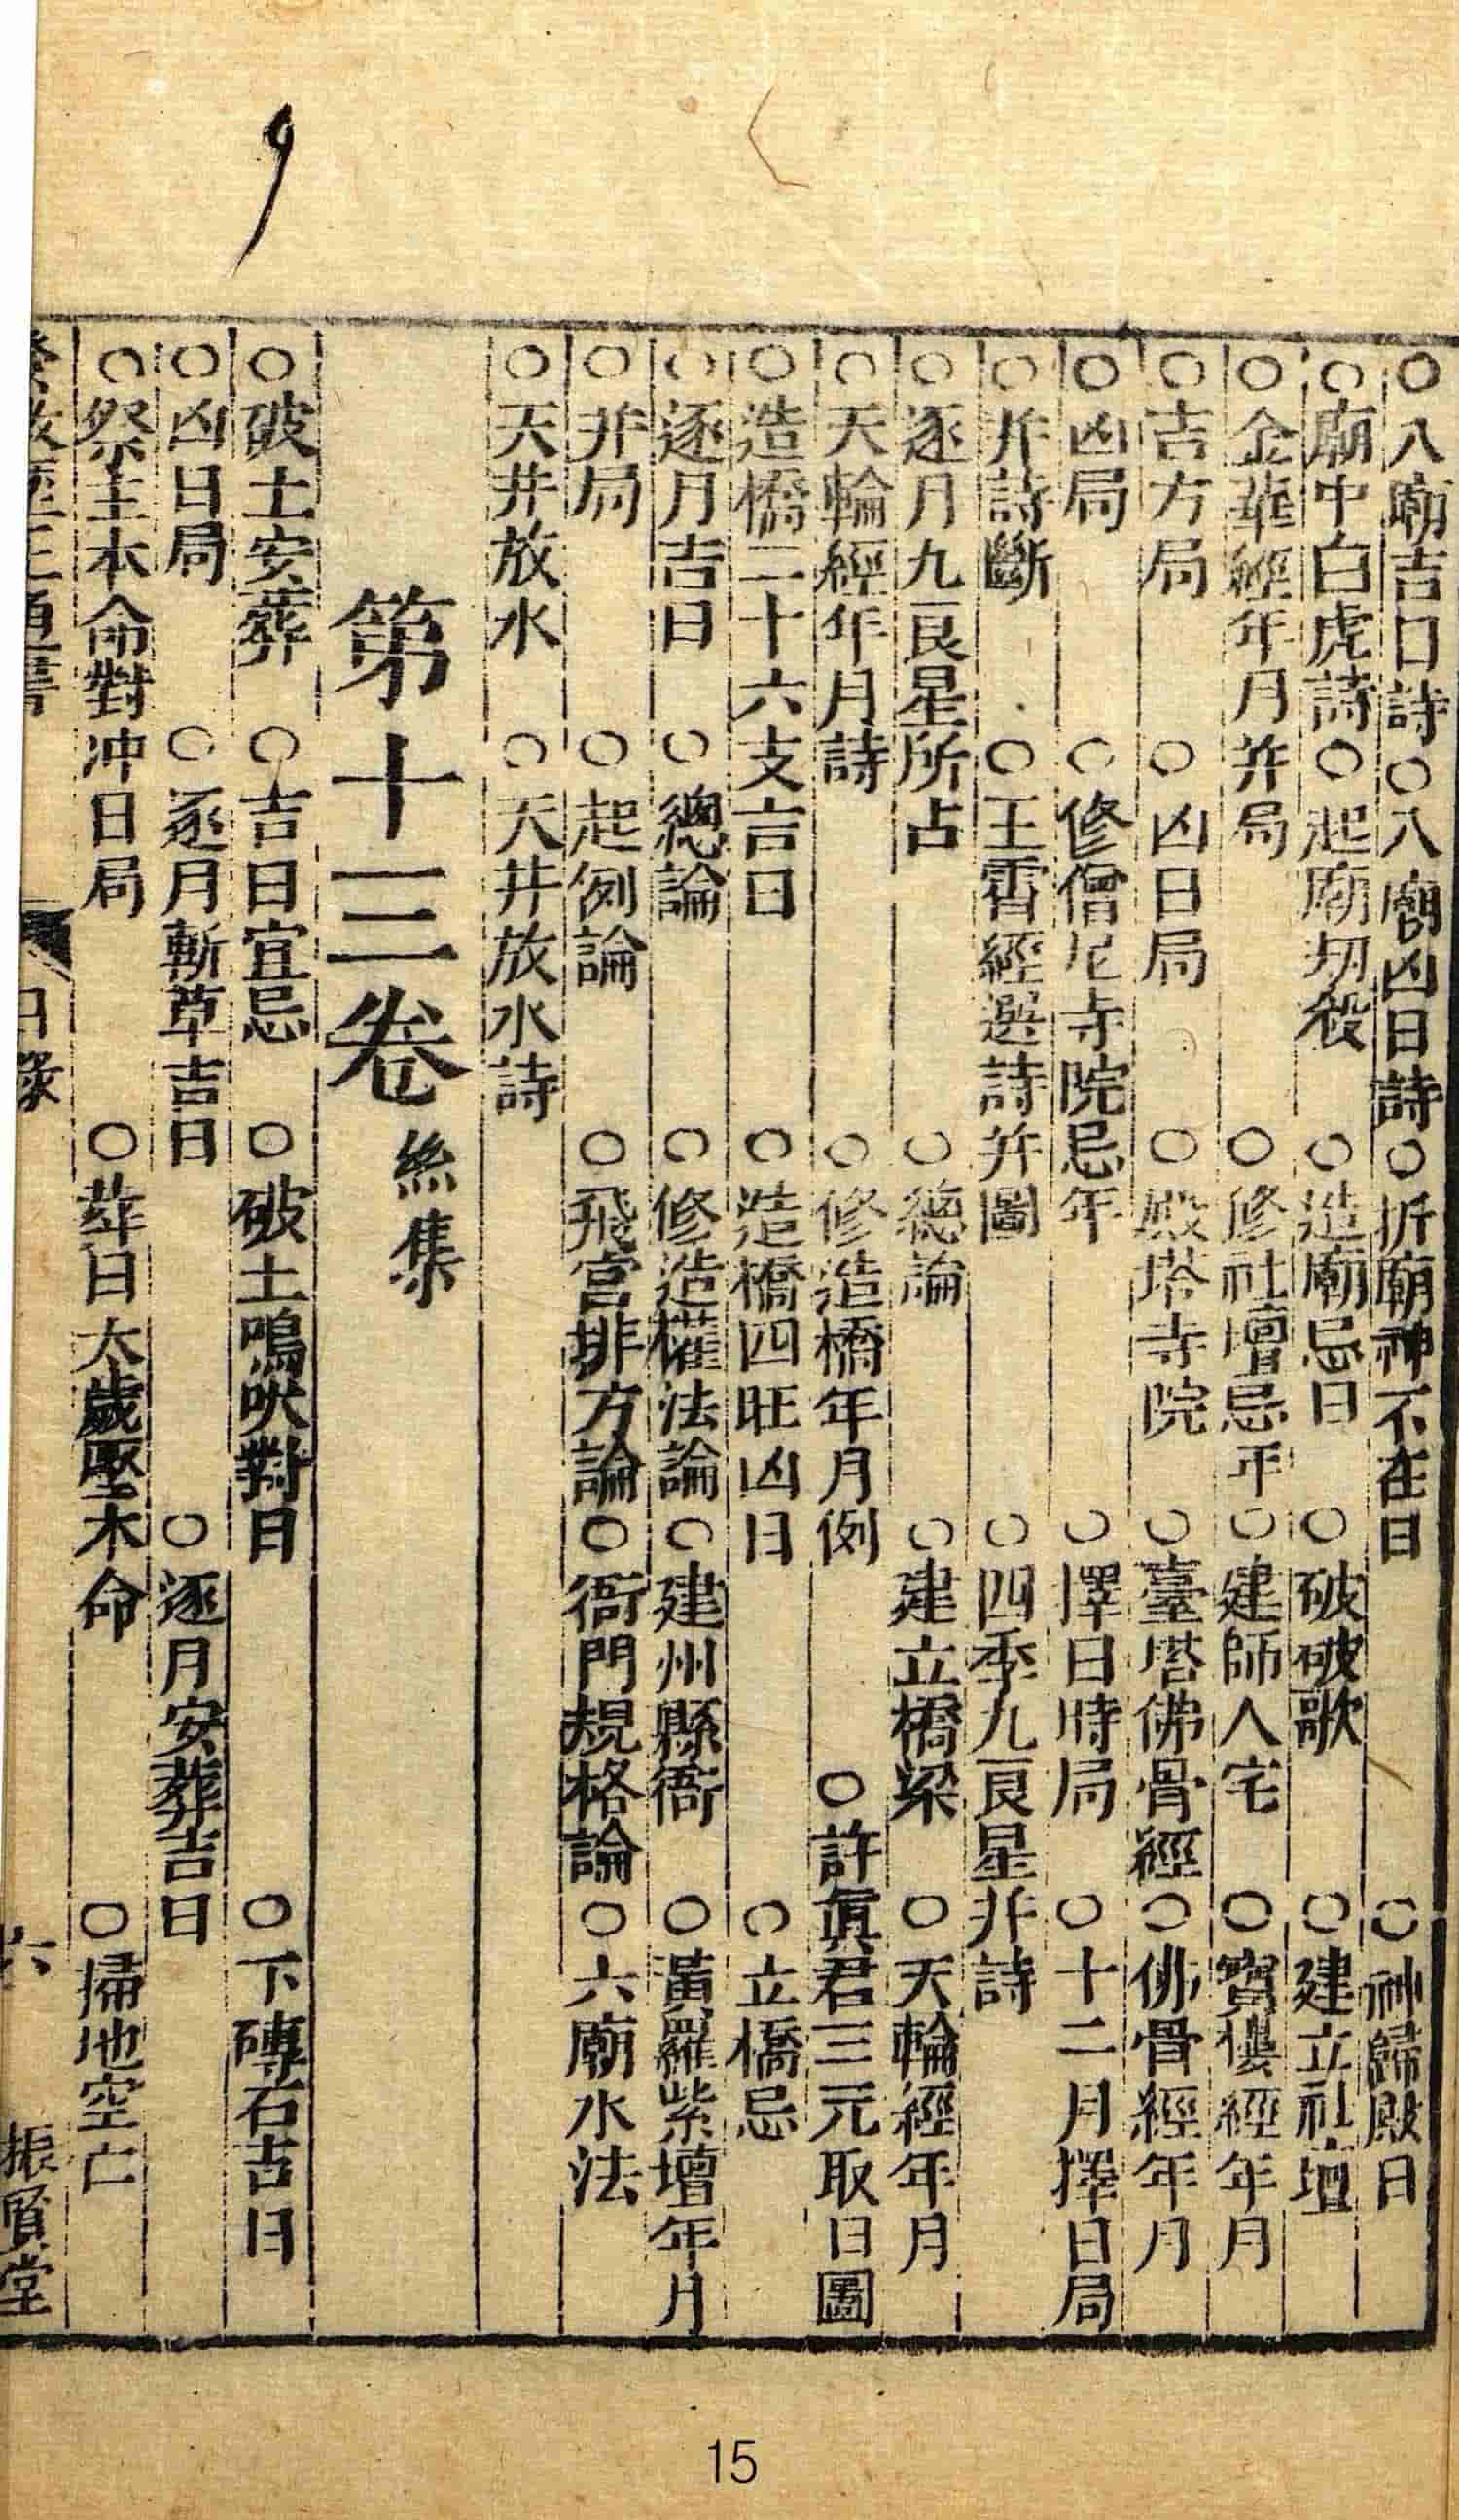 ○八廟吉日詩○八廟凶日詩○折廟神不在日○神歸殿日
○廟中白虎詩○起廟刼殺○造廟忌日○破破歌○建立社壇
○金華經年月并局○修社壇忌年○建師人宅○寳樓經年月
○吉方局○凶日局○殿塔寺院○臺塔佛骨經○佛骨經年月
○凶局○修僧尼寺院忌年○擇日時局○十二月擇日局
○并詩斷○玉霄經選詩并圖○四季九良星并詩
○逐月九良星所占○總論○建立橋梁○天輪經年月
○天輪經年月詩○修造橋年月例○許眞君三元取日圖
○造橋二十六支言日○造橋四旺凶日○立橋忌
○逐月吉日○總論○修造權法論○建州縣衙○黃羅紫壇年月
○并局○起例論○飛宮排方論○衙門規格論○六廟水法
○天井放水○天井放水詩
第十三卷 絲集
○破土安葬○吉日宜忌○破土鳴吠對日○下磚石吉日
○凶日局○逐月斬草吉日○逐月安葬吉日
○祭主本命對冲日局○葬日大歲壓本命○掃地空亡
目錄 六 振賢堂
15